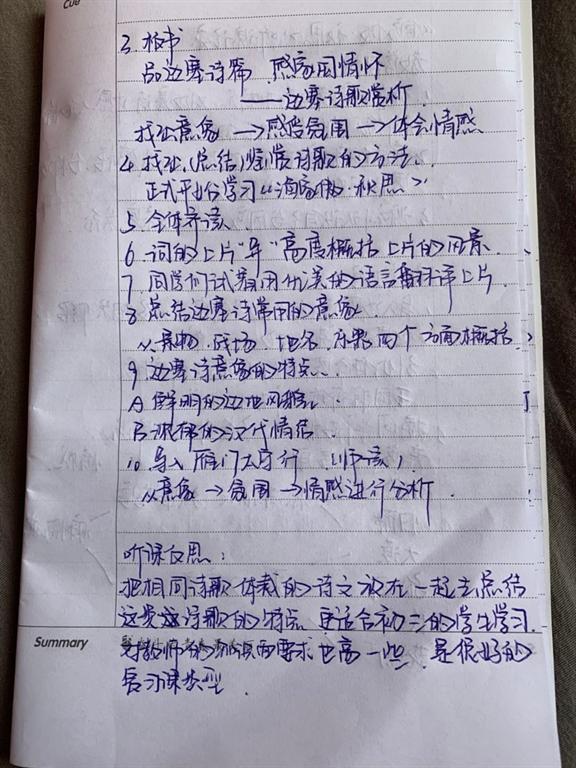 Cue
3. 板书
品边塞诗篇 感家国情怀
——边塞诗歌赏析
找出意象 → 感悟氛围 → 体会情感
4. 找出(总结)鉴赏诗歌的方法.
正式开始学习《渔家傲·秋思》
5. 全体齐读
6. 词的上片"异"高度概括上片的风景
7. 同学们试着用优美的语言翻译上片.
8. 总结边塞诗常用的意象.
从景物. 战场. 地名. 乐器四个方面概括.
9. 边塞诗意象的特点.
A 鲜明的边地风格.
B 浓郁的汉代情结
10. 导入雁门太守行 (师读)
从意象 → 氛围 → 情感进行分析.
听课反思:
把相同诗歌体裁的诗文放在一起去总结
这类诗歌的特点 更适合初三的学生学习.
Summary
对教师的知识面要求也高一些. 是很好的
复习课类型.